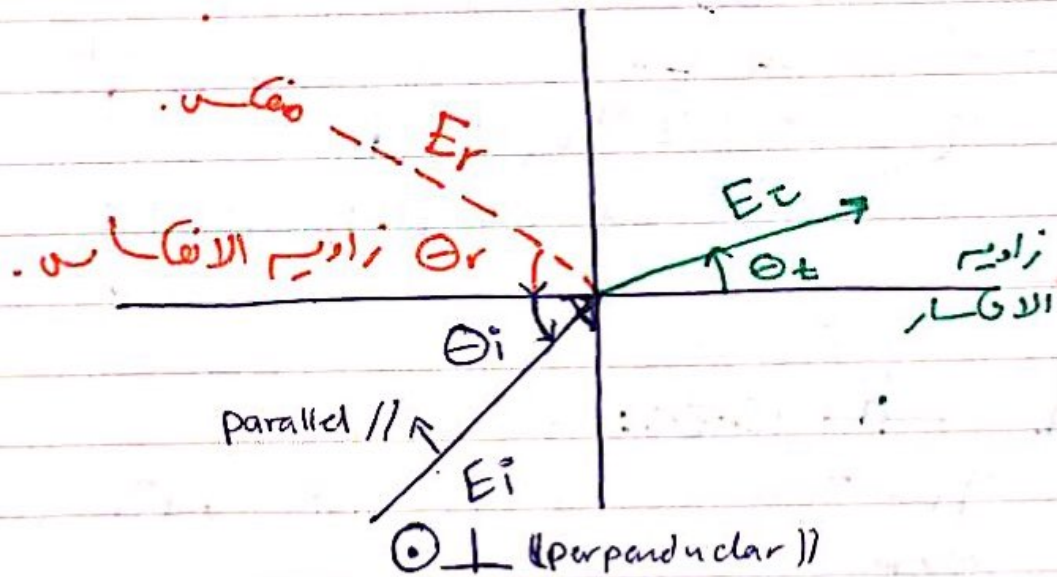 منعكس.
Er
Eτ
زاويه الانعكاس. Θr
Θt
زاويه
الانكسار
Θi
parallel //
Ei
⊙ ⊥ ((perpanduclar))